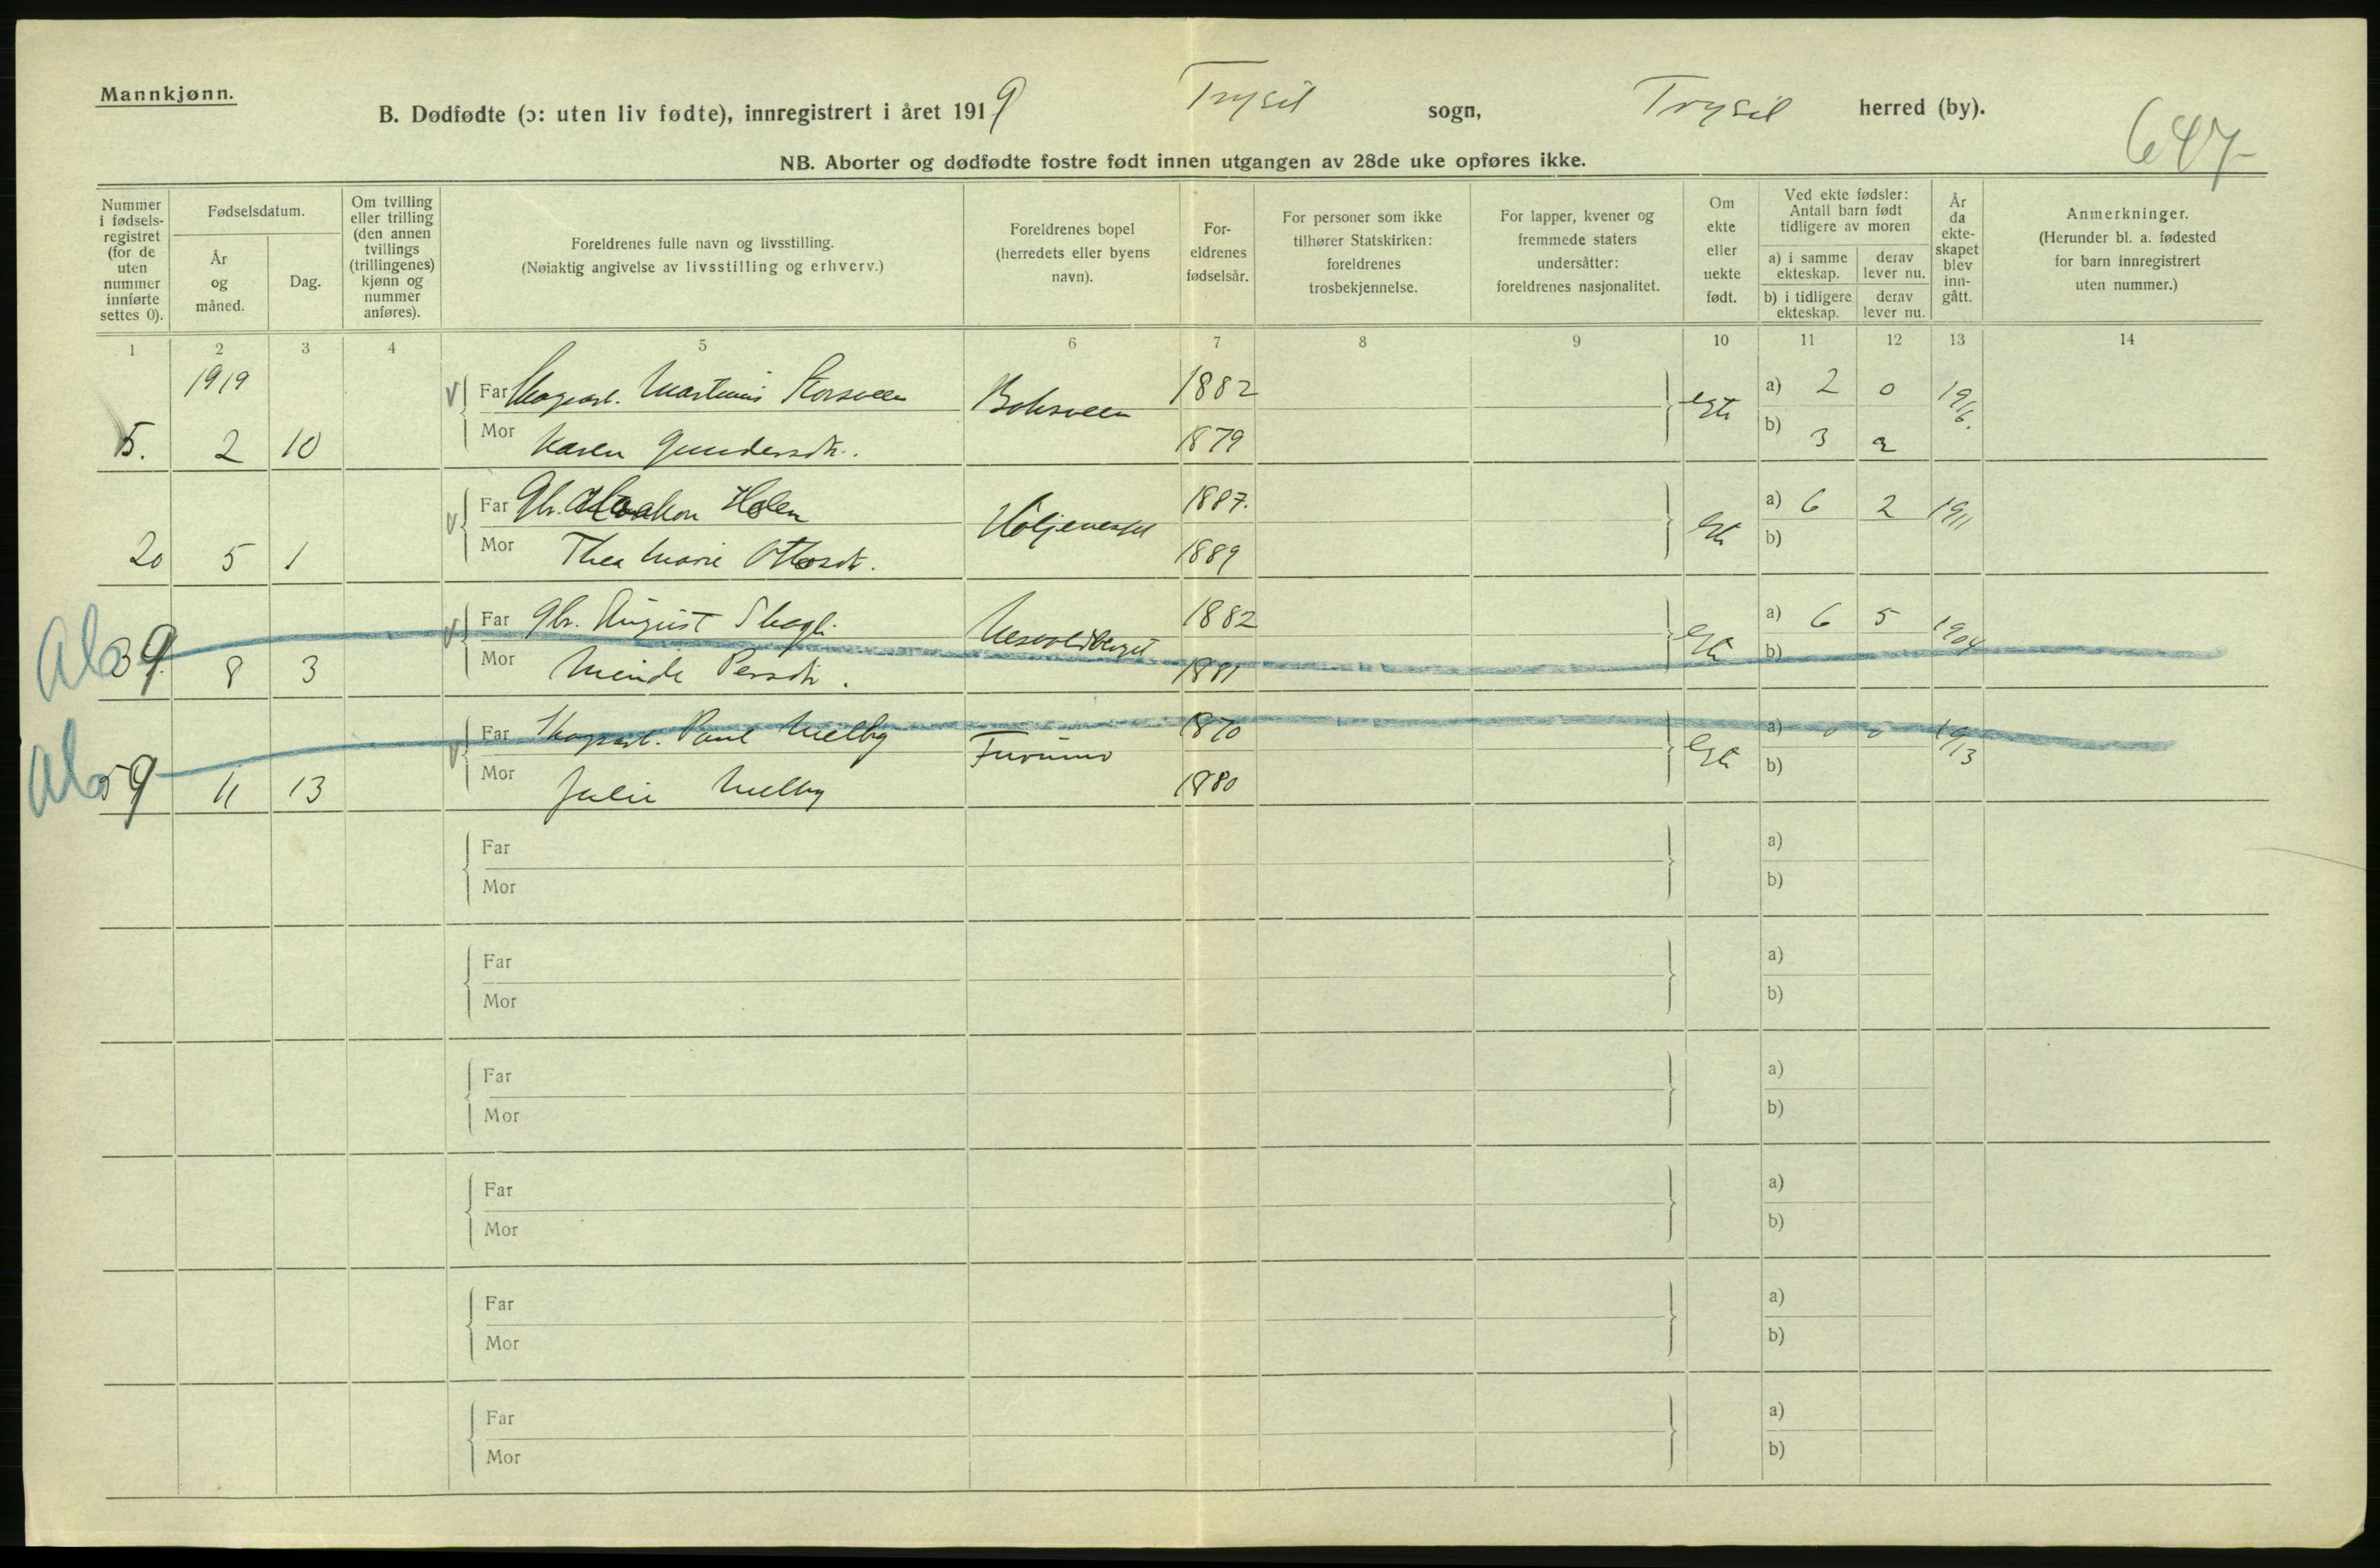 Mannkjønn.
B. Dødfødte (ɔ: uten liv fødte), innregistrert i året 1919 Trysil sogn, Trysil herred (by).
647
NB. Aborter og dødfødte fostre født innen utgangen av 28de uke opføres ikke.
Nummer i fødsels-registret (for de uten nummer innførte settes 0).
Fødselsdatum.
År og måned.
Dag.
Om tvilling eller trilling (den annen tvillings (trillingenes) kjønn og nummer anføres).
Foreldrenes fulle navn og livsstilling.
(Nøiaktig angivelse av livsstilling og erhverv.)
Foreldrenes bopel (herredets eller byens navn).
For-eldrenes fødselsår.
For personer som ikke tilhører Statskirken: foreldrenes trosbekjennelse.
For lapper, kvener og fremmede staters undersåtter: foreldrenes nasjonalitet.
Om ekte eller uekte født.
Ved ekte fødsler: Antall barn født tidligere av moren
a) i samme ekteskap.
derav lever nu.
b) i tidligere ekteskap.
derav lever nu.
År da ekte-skapet blev inn-gått.
Anmerkninger.
(Herunder bl. a. fødested for barn innregistrert uten nummer.)
1 2 3 4 5 6 7 8 9 10 11 12 13 14
1919
Far Skogsarb. Martinus Storsveen 1882 a) 2 0 1916.
5. 2 10 Mor Karen Gundersdt. 1879 egte b) 3 2
Far Gbr. Haakon Holen 1887. a) 6 2 1911
20 5 1 Mor Thea Marie Ottosdt. 1889 egte b)
Far Gbr. August Skogli 1882 a) 6 5 1904
39 8 3 Mor Persdt. 1881 egte b)
Far Skogsarb. Paul Melby Furumo 1870 a) 0 0 1913
59 11 13 Mor Julie Melby 1880 egte b)
Far a)
Mor b)
Far a)
Mor b)
Far a)
Mor b)
Far a)
Mor b)
Far a)
Mor b)
Far a)
Mor b)